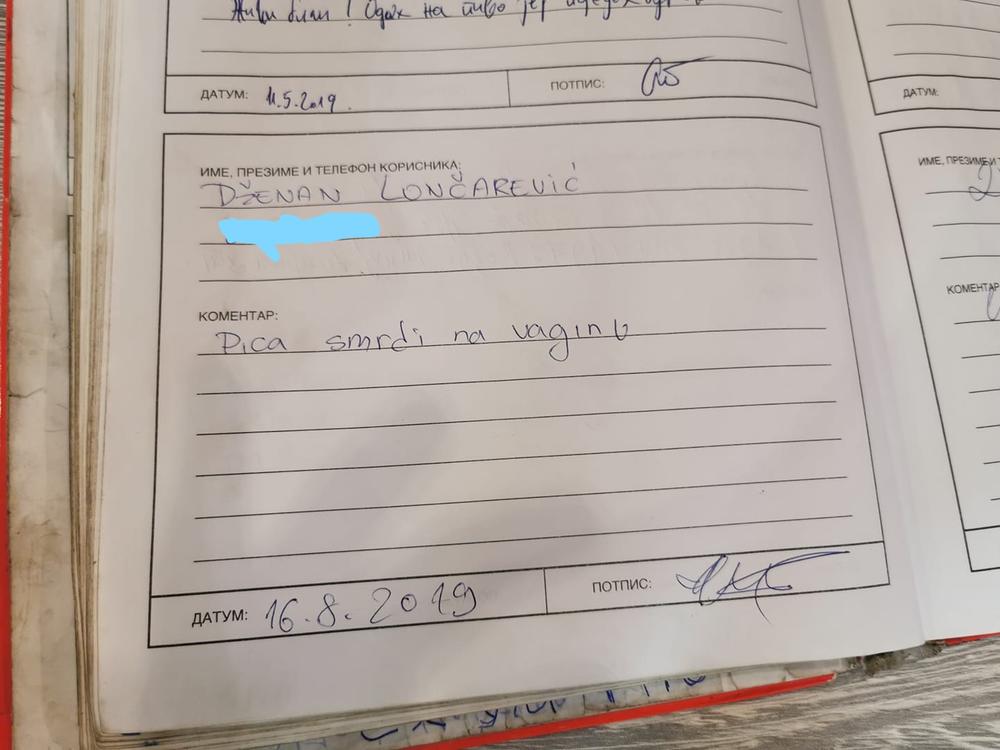 Живи били! Одох на пиво јер
ДАТУМ: 11.5.2019.
ПОТПИС:
ДАТУМ:
ИМЕ, ПРЕЗИМЕ И ТЕЛЕФОН КОРИСНИКА:
DŽENAN LONČAREVIĆ
КОМЕНТАР:
Pica smrdi na vaginu
ДАТУМ: 16.8.2019
ПОТПИС:
ИМЕ, ПРЕЗИМЕ И
КОМЕНТАР